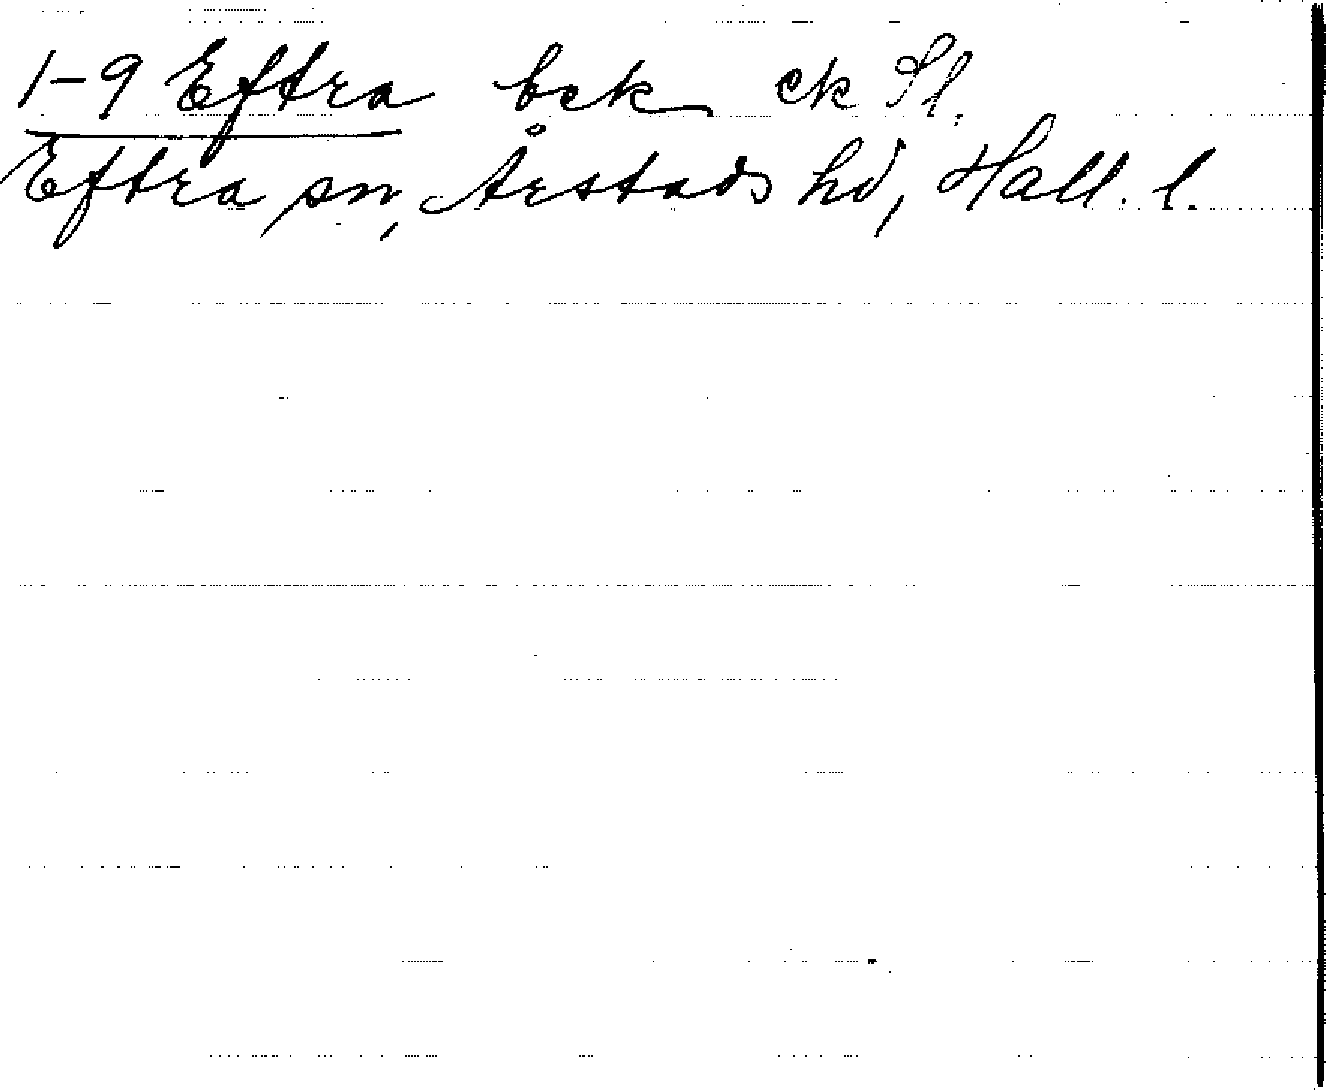 1-9 Eftra bek ek Sl.
Eftra sn, Årstads hd, Hall. l.